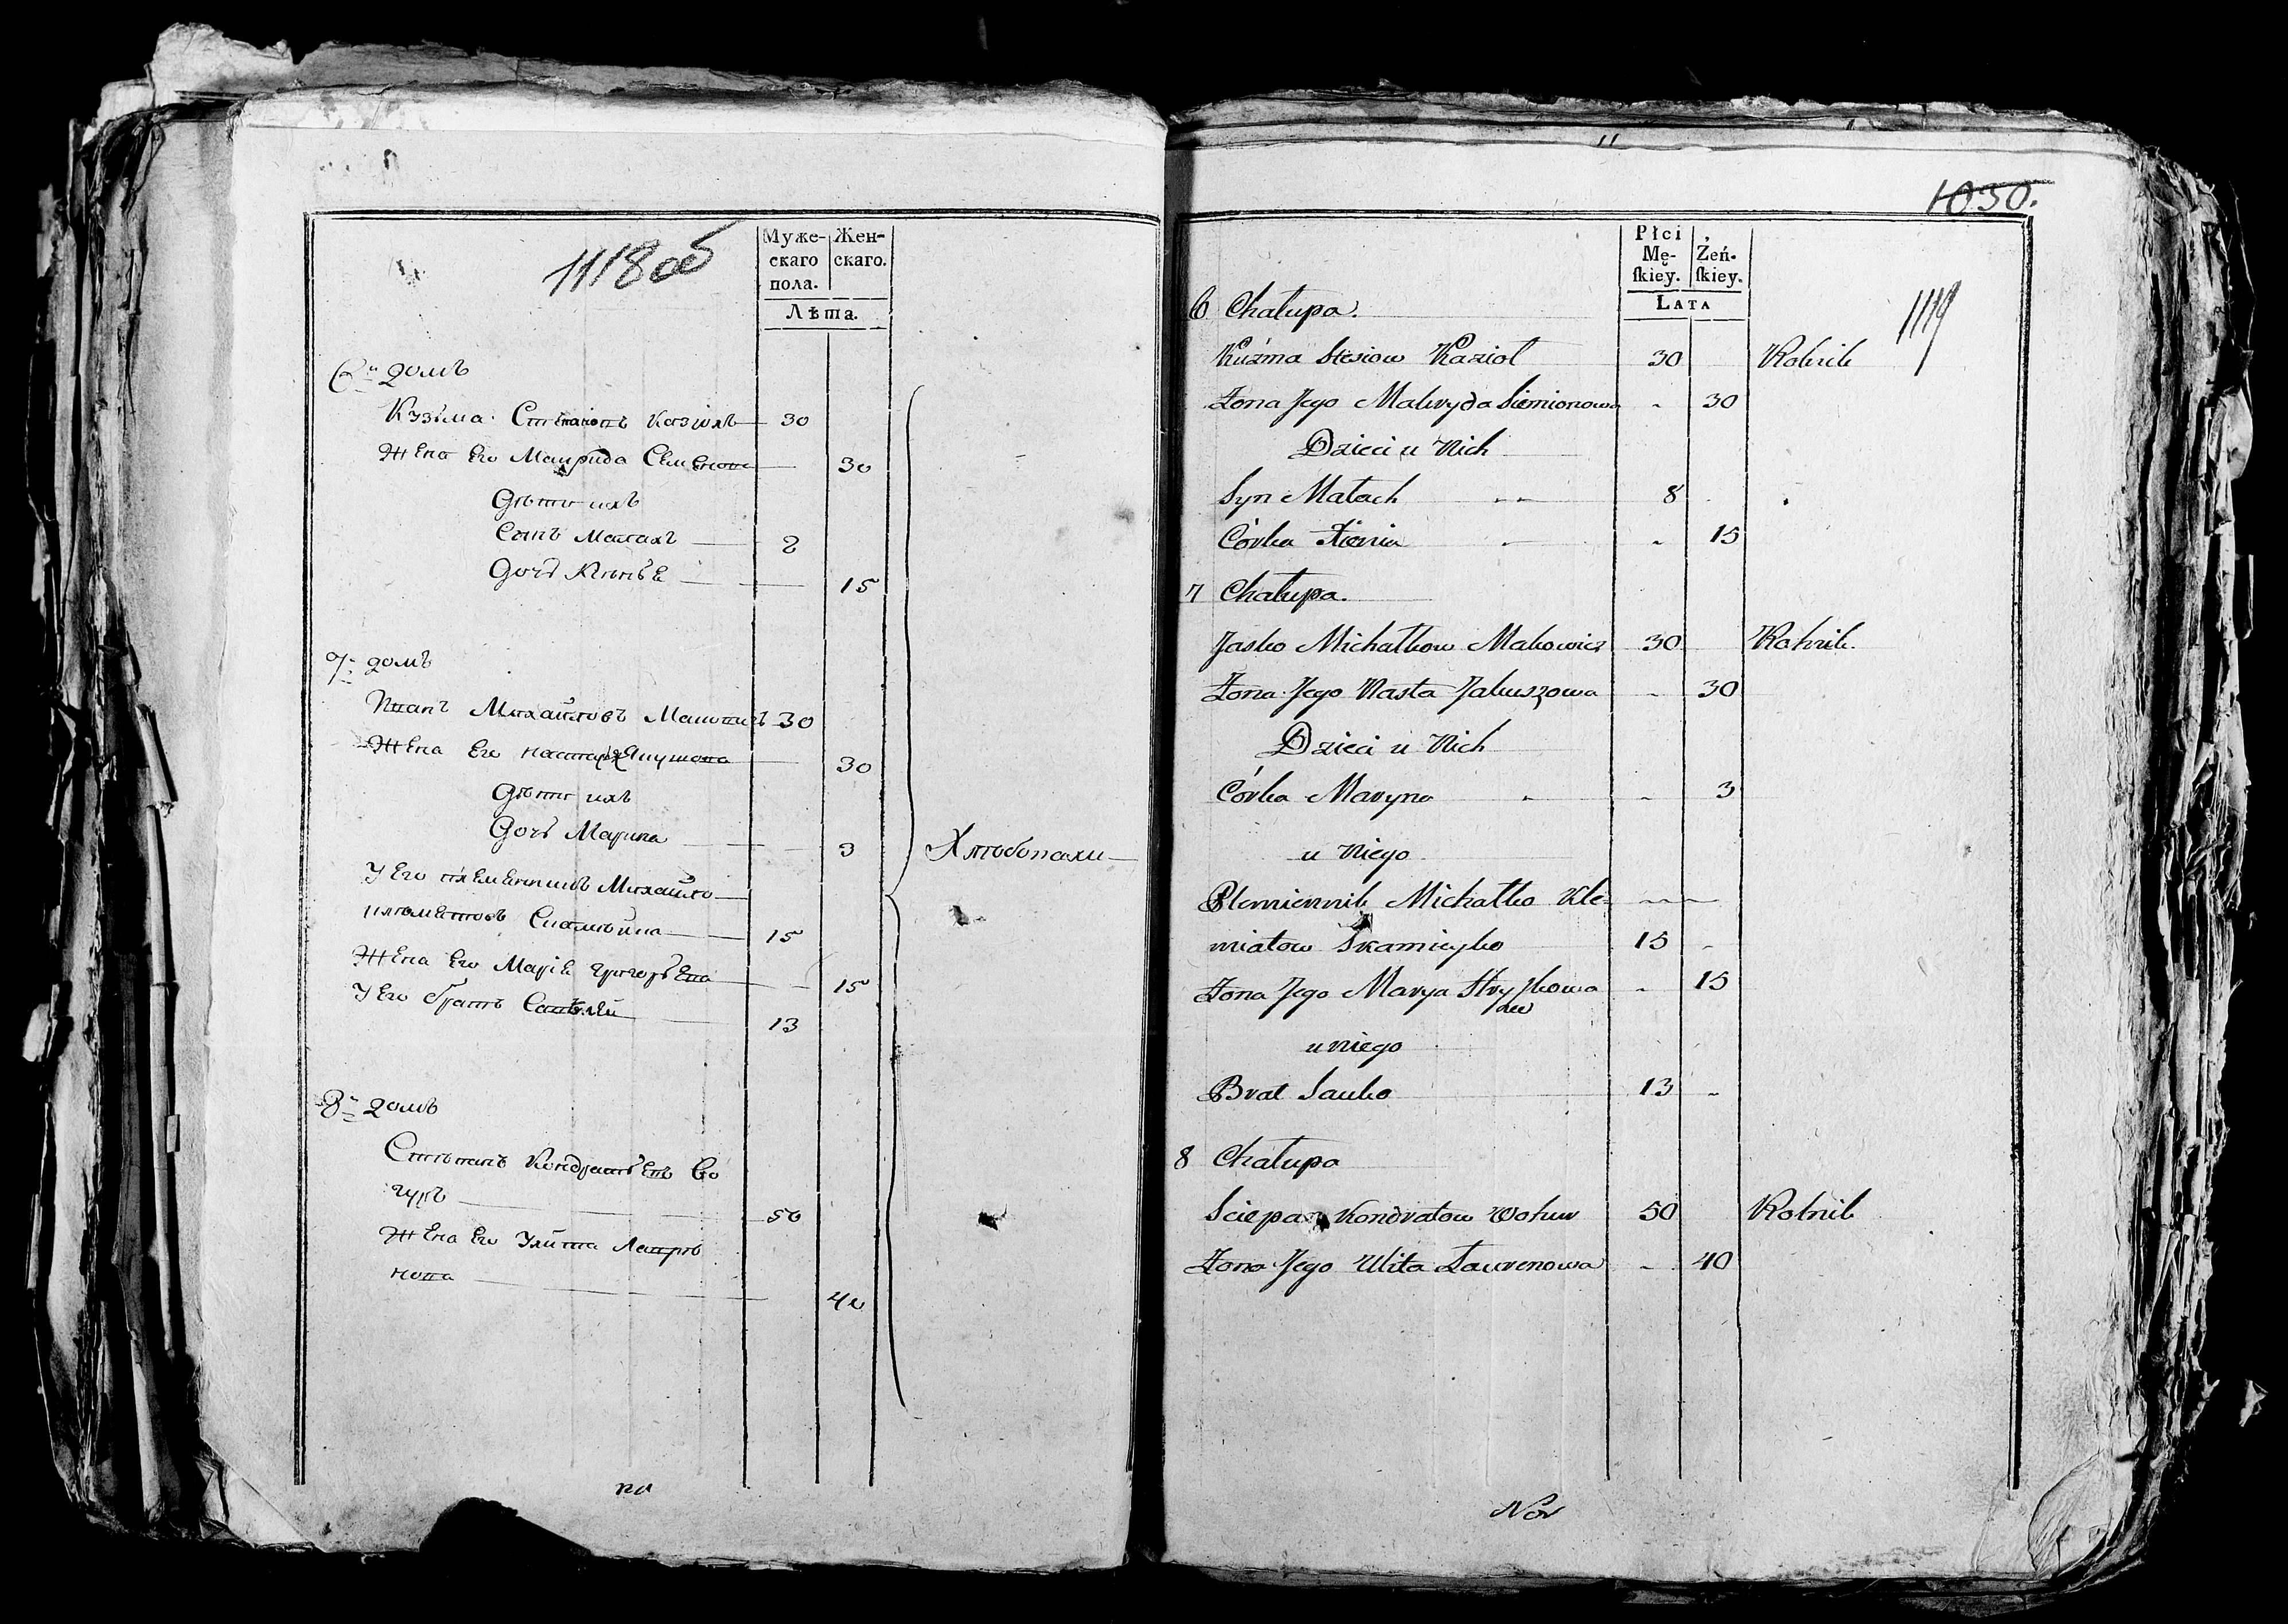 1118об
Муже-
скаго
пола.
Жен-
скаго.
Лѣта.
6й домъ
Кузьма Степановъ Козіолъ 30
Жена Его Маврида Семенова 30
Дѣти ихъ
Сынъ Малахъ 8
Дочь 15
7й домъ
Иванъ Михайловъ 30
Жена Его Настася Якушова 30
Дѣти ихъ
Дочь Марина 3
У Его племенникъ Михайло
15
Жена Его Маріа Григорьева 15
У Его братъ Савелей 13
Хлѣбопахи
8й домъ
Стѣпанъ Кондратьевъ Во
гуръ 50
Жена Его Улита Лаврѣ
нова 40
1030.
1119
Płci
Mę-
ſkiey.
Żeń-
ſkiey.
LATA
6 Chałupa.
Kuźma Stesiow Kazioł 30 Rolnik
Żona Jego Mawryda Siemionowa - 30
Dzieci u Nich
Syn Małach 8
Córka Xienia - 15
7 Chałupa.
Jasko Michałkow Makowicz 30 Rolnik.
Żona Jego Nasta Jakuszowa - 30
Dzieci u Nich
Córka Maryna - 3
u Niego
Plemiennik Michałko Kle-
miatow Skamieyko 15 -
Żona Jego Marya - 15
u niego
Brat Sawko 13 -
8 Chałupa
Sciepan Kondratow Wohur 50 Rolnik
Żona Jego Ulita Ławrenowa - 40